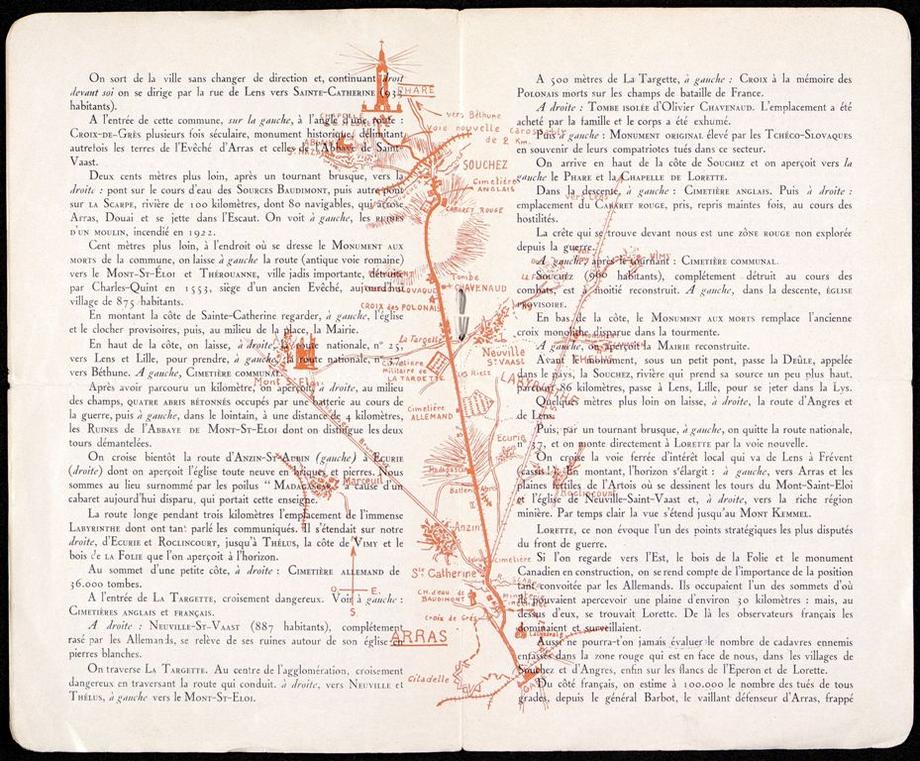 On sort de la ville sans changer de direction et, continuant droit
devant soi on se dirige par la rue de Lens vers SAINTE-CATHERINE (934
habitants).
A l'entrée de cette commune, sur la gauche, à l'angle d'une route :
CROIX-DE-GRÈS plusieurs fois séculaire, monument historique délimitant
autrefois les terres de l'Evêché d'Arras et celles de l'Abbaye de Saint-
Vaast.
Deux cents mètres plus loin, après un tournant brusque, vers la
droite : pont sur le cours d'eau des SOURCES BAUDIMONT, puis autre pont
sur LA SCARPE, rivière de 100 kilomètres, dont 80 navigables, qui arrose
Arras, Douai et se jette dans l'Escaut. On voit à gauche, les RUINES
D'UN MOULIN, incendié en 1922.
Cent mètres plus loin, à l'endroit où se dresse le MONUMENT AUX
MORTS de la commune, on laisse à gauche la route (antique voie romaine)
vers le MONT-ST-ÉLOI et THÉROUANNE, ville jadis importante, détruite
par Charles-Quint en 1553, siège d'un ancien Evêché, aujourd'hui
village de 875 habitants.
En montant la côte de Sainte-Catherine regarder, à gauche, l'église
et le clocher provisoires, puis, au milieu de la place, la Mairie.
En haut de la côte, on laisse, à droite, la route nationale, n° 25,
vers Lens et Lille, pour prendre, à gauche, la route nationale, n° 37,
vers Béthune. A gauche, CIMETIÈRE COMMUNAL.
Après avoir parcouru un kilomètre, on aperçoit, à droite, au milieu
des champs, QUATRE ABRIS BÉTONNÉS occupés par une batterie au cours de
la guerre, puis à gauche, dans le lointain, à une distance de 4 kilomètres,
les RUINES de l'ABBAYE DE MONT-ST-ELOI dont on distingue les deux
tours démantelées.
On croise bientôt la route d'ANZIN-ST-AUBIN (gauche) à ECURIE
(droite) dont on aperçoit l'église toute neuve en briques et pierres. Nous
sommes au lieu surnommé par les poilus " MADAGASCAR " à cause d'un
cabaret aujourd'hui disparu, qui portait cette enseigne.
La route longe pendant trois kilomètres l'emplacement de l'immense
LABYRINTHE dont ont tant parlé les communiqués. Il s'étendait sur notre
droite, d'ECURIE et ROCLINCOURT, jusqu'à THÉLUS, la côte de VIMY et le
bois de LA FOLIE que l'on aperçoit à l'horizon.
Au sommet d'une petite côte, à droite : CIMETIÈRE ALLEMAND de
36.000 tombes.
A l'entrée de LA TARGETTE, croisement dangereux. Voir à gauche :
CIMETIÈRES ANGLAIS et FRANÇAIS.
A droite : NEUVILLE-ST-VAAST (887 habitants), complètement
rasé par les Allemands, se relève de ses ruines autour de son église en
pierres blanches.
On traverse LA TARGETTE. Au centre de l'agglomération, croisement
dangereux en traversant la route qui conduit. à droite, vers NEUVILLE et
THÉLUS, à gauche vers le MONT-ST-ELOI.
PHARE
vers Béthune
voie nouvelle carossable
de 2 Km.
SOUCHEZ
Cimetières
ANGLAIS
CABARET ROUGE
Tombe
CHAVENAUD
CROIX des POLONAIS
La Targette
Neuville
ST VAAST
Cimetière
Militaire de
LA TARGETTE
Rietz
Mont St Eloi
LABYRINTHE
Cimetière
ALLEMAND
Ecurie
Madagascar
Marœuil
Roclincourt
Anzin
Cimetière
Ste Catherine
CH. d'eau de
BAUDIMONT
Croix de Grès
O
E.
S
ARRAS
Citadelle
Cathédrale
GARE
THELUS
VIMY
vers Lens
A 500 mètres de La Targette, à gauche : CROIX à la mémoire des
POLONAIS morts sur les champs de bataille de France.
A droite : TOMBE ISOLÉE d'Olivier CHAVENAUD. L'emplacement a été
acheté par la famille et le corps a été exhumé.
Puis à gauche : MONUMENT ORIGINAL élevé par les TCHÉCO-SLOVAQUES
en souvenir de leurs compatriotes tués dans ce secteur.
On arrive en haut de la côte de SOUCHEZ et on aperçoit vers la
gauche le PHARE et la CHAPELLE DE LORETTE.
Dans la descente, à gauche : CIMETIÈRE ANGLAIS. Puis à droite :
emplacement du CABARET ROUGE, pris, repris maintes fois, au cours des
hostilités.
La crête qui se trouve devant nous est une ZÔNE ROUGE non explorée
depuis la guerre.
A gauche, après le tournant : CIMETIÈRE COMMUNAL.
SOUCHEZ (966 habitants), complétement détruit au cours des
combats, est à moitié reconstruit. A gauche, dans la descente, ÉGLISE
PROVISOIRE.
En bas de la côte, le MONUMENT AUX MORTS remplace l'ancienne
croix monolithe disparue dans la tourmente.
A gauche, on aperçoit la MAIRIE reconstruite.
Avant le monument, sous un petit pont, passe la DEÛLE, appelée
dans le pays, la SOUCHEZ, rivière qui prend sa source un peu plus haut,
parcourt 86 kilomètres, passe à Lens, Lille, pour se jeter dans la Lys.
Quelques mètres plus loin on laisse, à droite, la route d'Angres et
de Lens.
Puis, par un tournant brusque, à gauche, on quitte la route nationale,
n° 37, et on monte directement à LORETTE par la voie nouvelle.
On croise la voie ferrée d'intérêt local qui va de Lens à Frévent
(cassis !). En montant, l'horizon s'élargit : à gauche, vers Arras et les
plaines fertiles de l'Artois où se dessinent les tours du Mont-Saint-Eloi
et l'église de Neuville-Saint-Vaast et, à droite, vers la riche région
minière. Par temps clair la vue s'étend jusqu'au MONT KEMMEL.
LORETTE, ce nom évoque l'un des points stratégiques les plus disputés
du front de guerre.
Si l'on regarde vers l'Est, le bois de la Folie et le monument
Canadien en construction, on se rend compte de l'importance de la position
tant convoitée par les Allemands. Ils occupaient l'un des sommets d'où
ils pouvaient apercevoir une plaine d'environ 30 kilomètres : mais, au
dessus d'eux, se trouvait Lorette. De là les observateurs français les
dominaient et surveillaient.
Aussi ne pourra-t'on jamais évaluer le nombre de cadavres ennemis
entassés dans la zone rouge qui est en face de nous, dans les villages de
Souchez et d'Angres, enfin sur les flancs de l'Eperon et de Lorette.
Du côté français, on estime à 100.000 le nombre des tués de tous
grades, depuis le général Barbot, le vaillant défenseur d'Arras, frappé